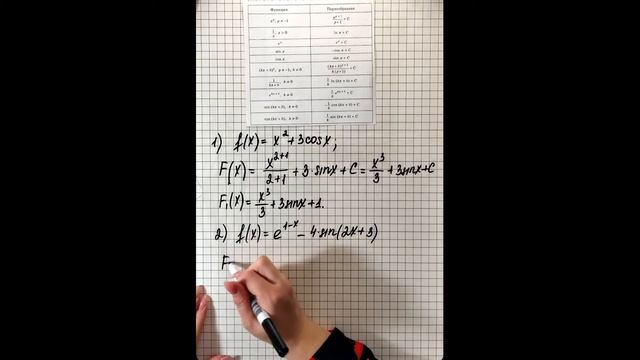 Функция Первообразная
x^p, p ≠ -1 x^(p+1)/(p+1) + C
1/x, x > 0 ln x + C
e^x e^x + C
sin x -cos x + C
cos x sin x + C
(kx + b)^p, p ≠ -1, k ≠ 0 (kx + b)^(p+1)/(k(p+1)) + C
1/(kx + b), k ≠ 0 1/k ln (kx + b) + C
e^(kx+b), k ≠ 0 1/k e^(kx+b) + C
sin (kx + b), k ≠ 0 -1/k cos (kx + b) + C
cos (kx + b), k ≠ 0 1/k sin (kx + b) + C
1) f(x) = x^2 + 3cosx;
F(x) = x^(2+1)/(2+1) + 3·sinx + C = x^3/3 + 3sinx + C
F₁(x) = x^3/3 + 3sinx + 1.
2) f(x) = e^(1-x) - 4·sin(2x+3)
F